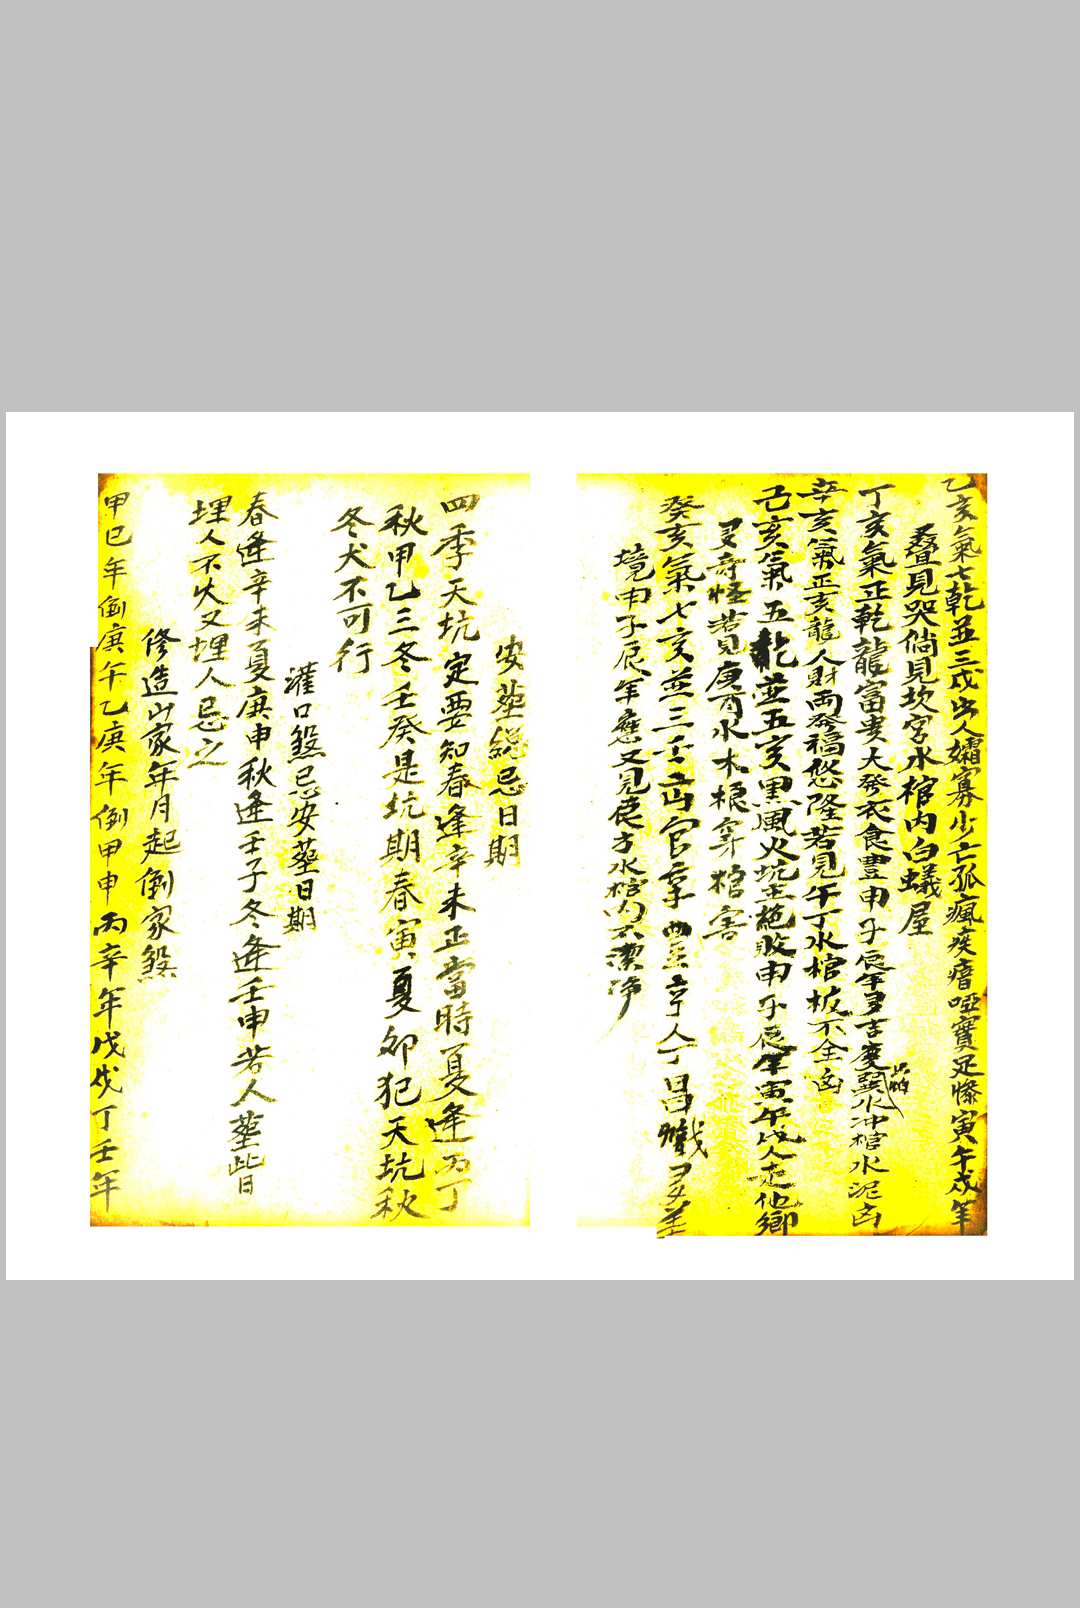 乙亥氣七乾並三戌出人孀寡少亡孤瘋疾瘖啞寶足慘寅午戌年
疊見哭倘見坎宮水棺內白蟻屋
丁亥氣正乾龍富貴大發衣食豐申子辰年多吉度巽水冲棺水泥凶
辛亥氣正亥龍人財兩發福悠隆若見午丁水棺板不全凶
己亥氣五乾並五亥黑風火坑主絕敗申子辰年寅午戌人走他鄉
又奇怪若見庚酉水木根穿棺害
癸亥氣七亥並三壬高官享豐亨人丁昌
境申子辰年應又見辰方水棺內不潔淨
安葬総忌日期
四季天坑定要知春逢辛未正當時夏逢丙丁
秋甲乙三冬壬癸是坑期春寅夏卯犯天坑秋
冬犬不可行
灌口煞忌安葬日期
春逢辛未夏庚申秋逢壬子冬逢壬申若人葬此日
埋人不久又埋人忌之
修造山家年月起倒家煞
甲巳年倒庚午乙庚年倒甲申丙辛年戊戌丁壬年